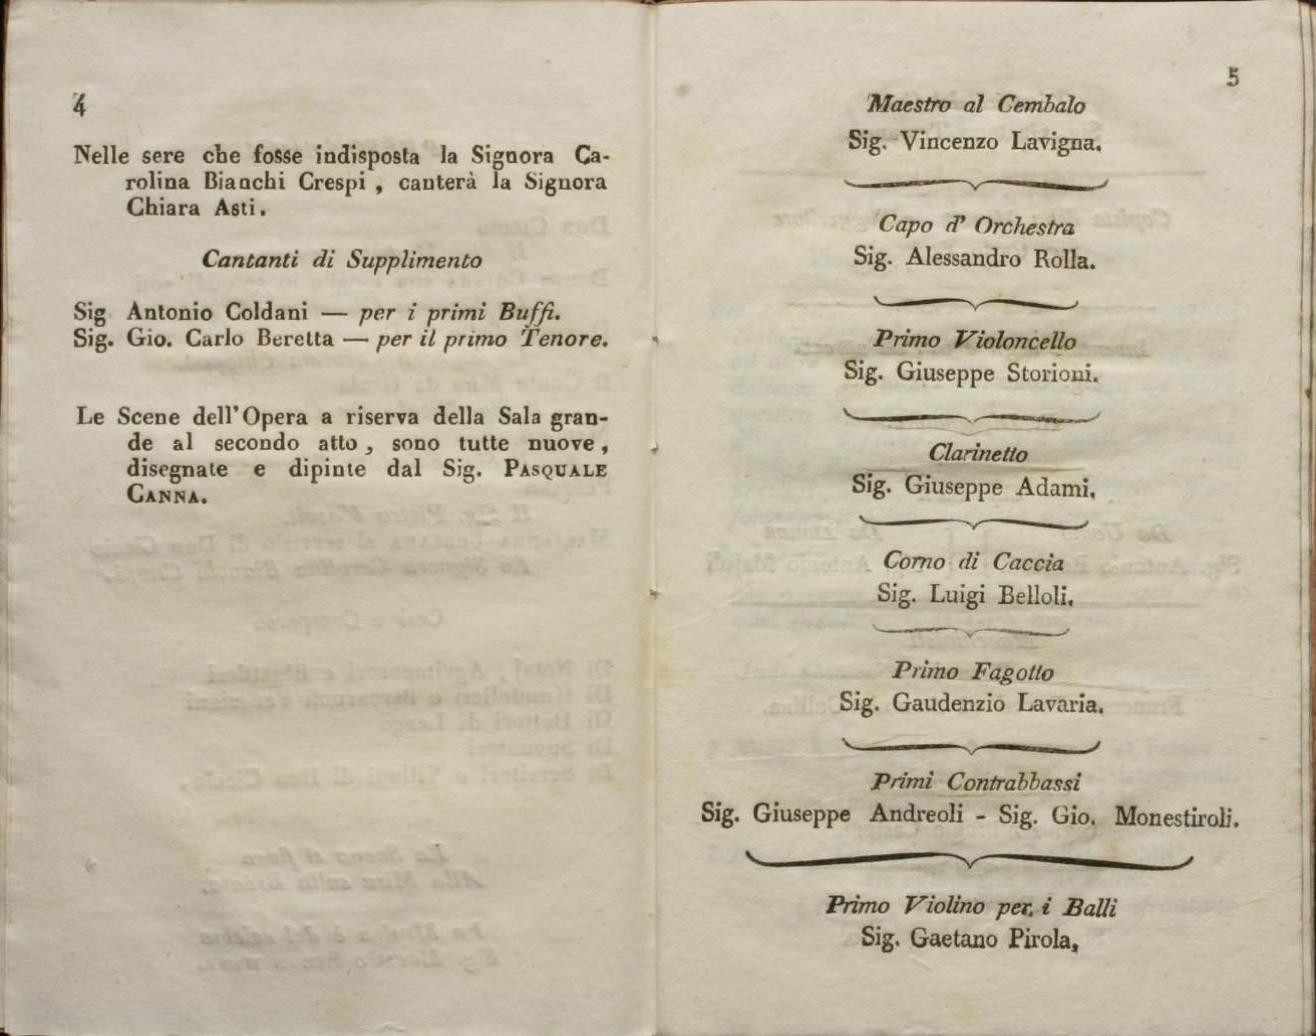 4
Nelle sere che fosse indisposta la Signora Ca-
rolina Bianchi Crespi , canterà la Signora
Chiara Asti.
Cantanti di Supplimento
Sig Antonio Coldani — per i primi Buffi.
Sig. Gio. Carlo Beretta — per il primo Tenore.
Le Scene dell'Opera a riserva della Sala gran-
de al secondo atto , sono tutte nuove ,
disegnate e dipinte dal Sig. PASQUALE
CANNA.
5
Maestro al Cembalo
Sig. Vincenzo Lavigna.
Capo d' Orchestra
Sig. Alessandro Rolla.
Primo Violoncello
Sig. Giuseppe Storioni.
Clarinetto
Sig. Giuseppe Adami.
Corno di Caccia
Sig. Luigi Belloli.
Primo Fagotto
Sig. Gaudenzio Lavaria.
Primi Contrabbassi
Sig. Giuseppe Andreoli - Sig. Gio. Monestiroli.
Primo Violino per i Balli
Sig. Gaetano Pirola,